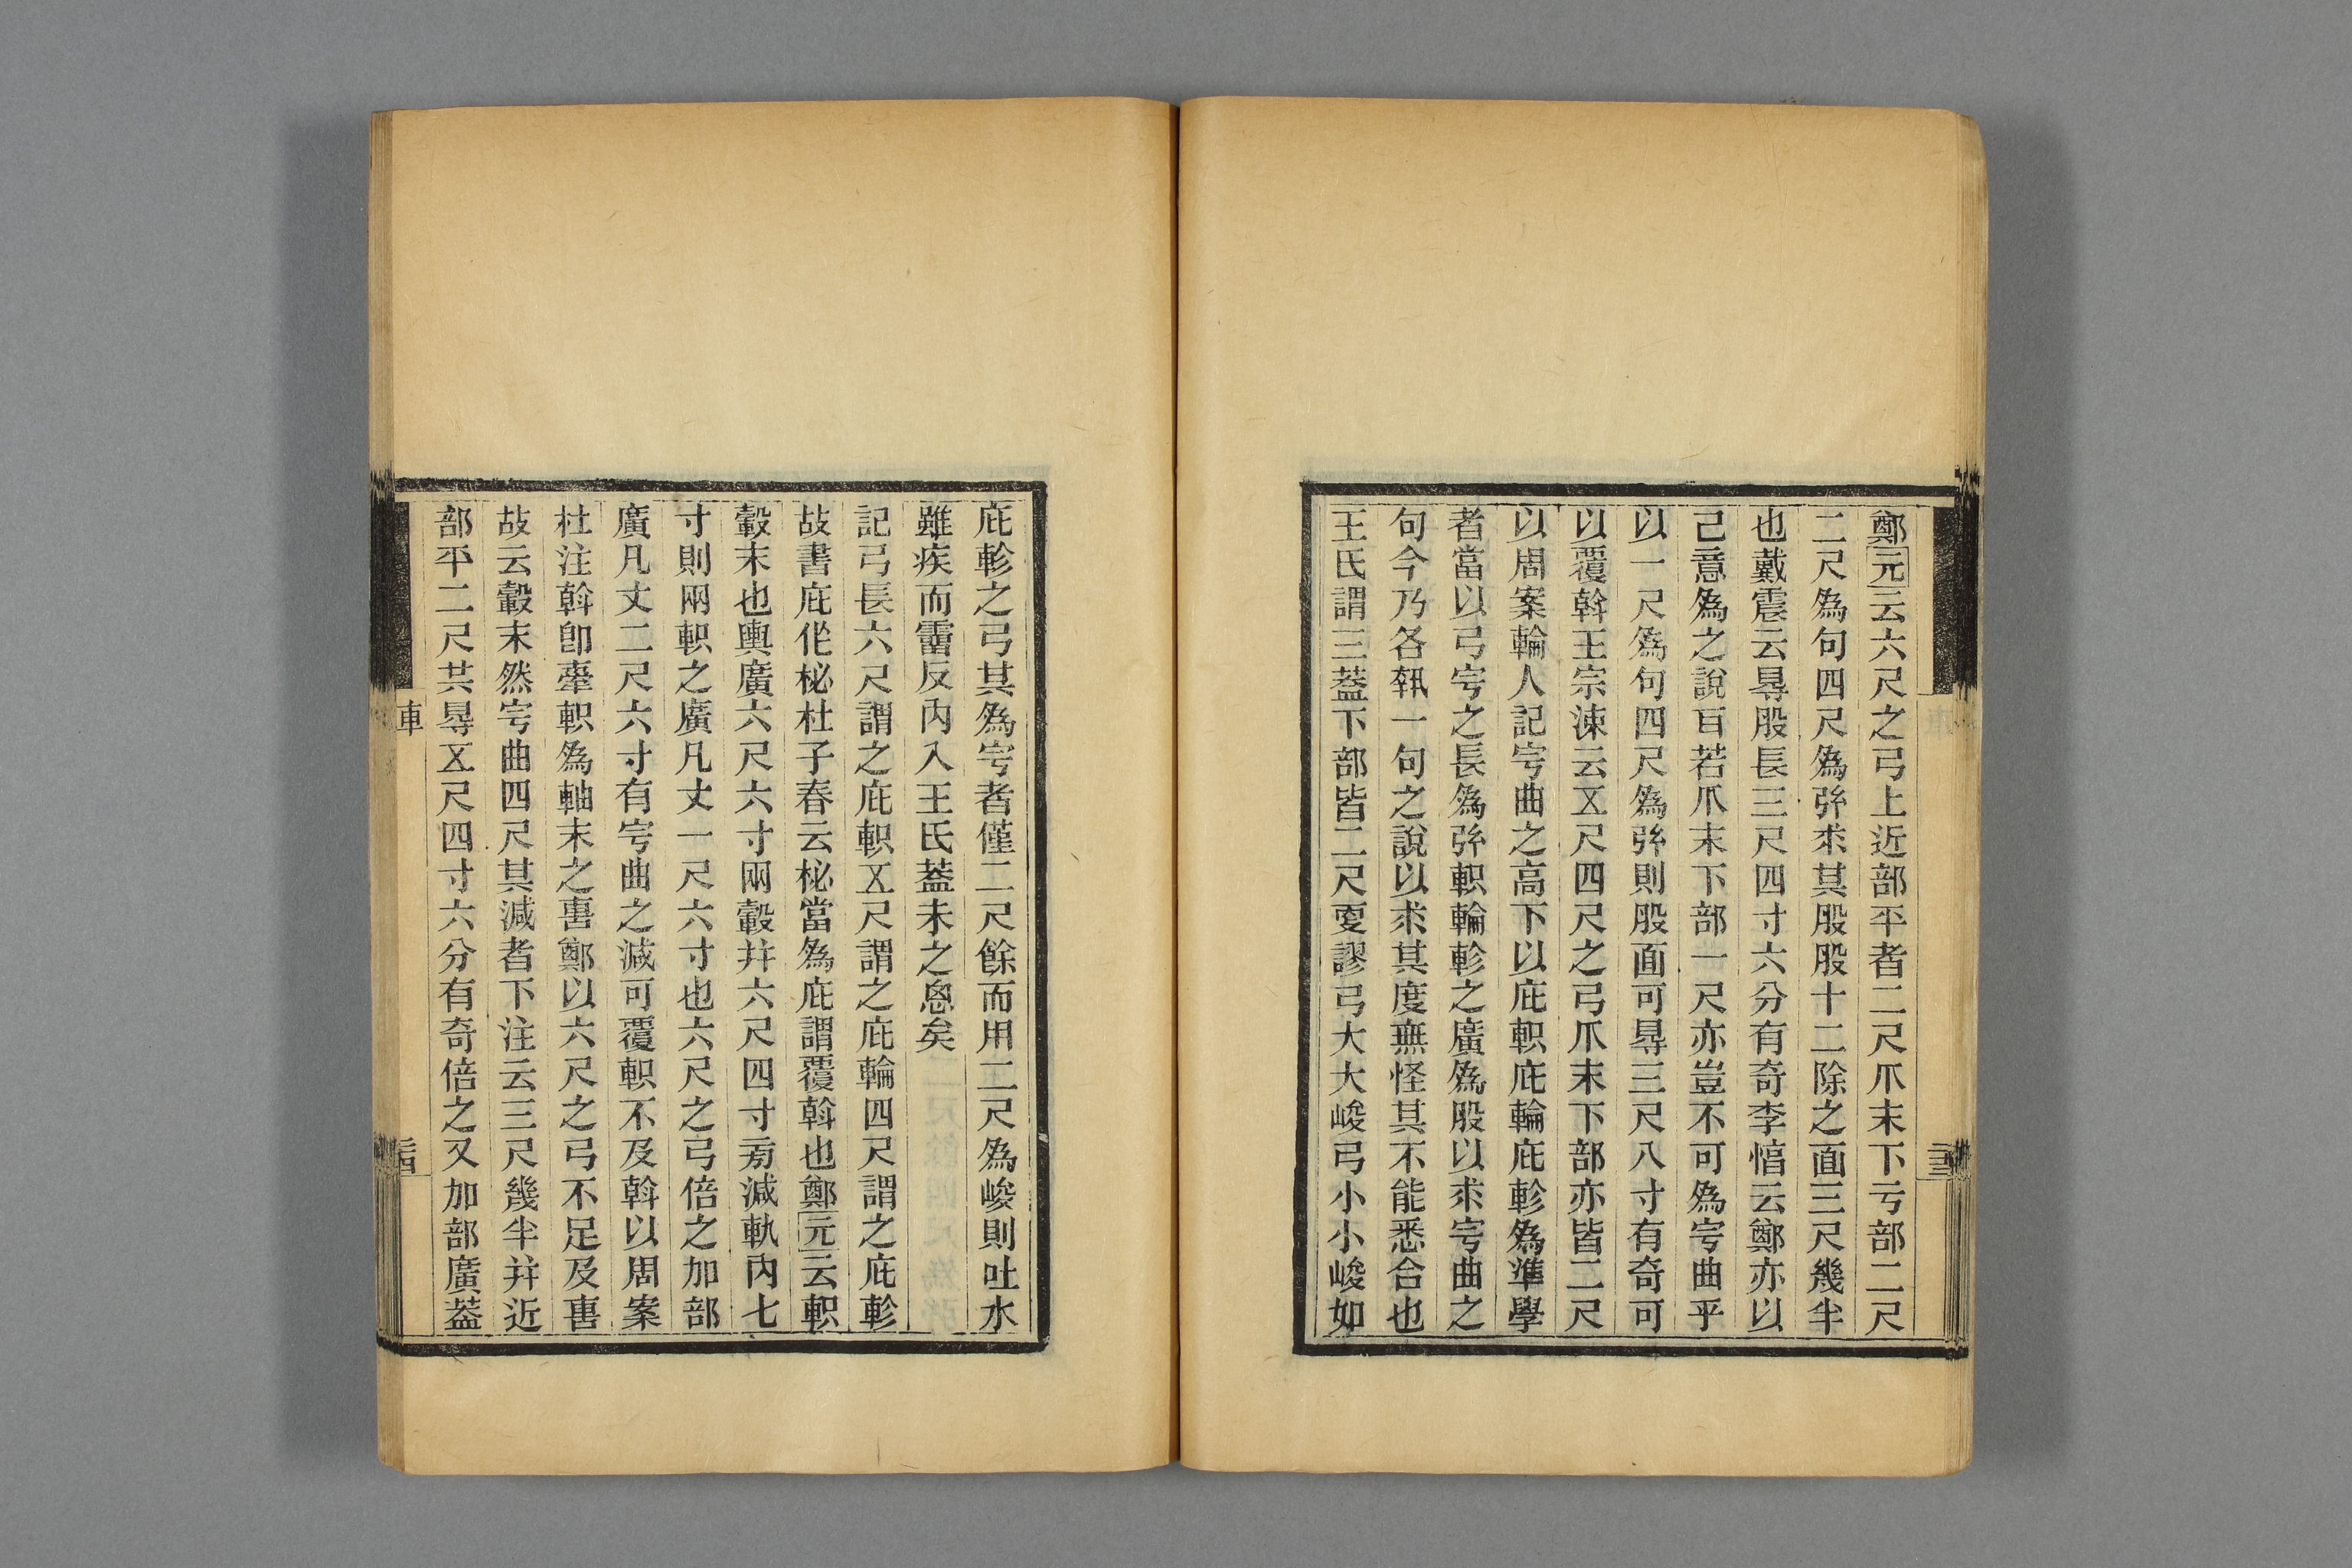 鄭元云六尺之弓上近部平者二尺爪末下亏部二尺
二尺爲句四尺爲弦求其股股十二除之面三尺幾半
也戴震云㝵股長三尺四寸六分有奇李惇云鄭亦以
己意爲之說百若爪末下部一尺亦豈不可爲穹曲乎
以一尺爲句四尺爲弦則股面可㝵三尺八寸有奇可
以覆斡王宗涑云㐅尺四尺之弓爪末下部亦皆二尺
以周案輪人記穹曲之高下以庇軹庇輪庇軫爲準學
者當以弓穹之長爲弦軹輪軫之廣爲股以求穹曲之
句今乃各執一句之說以求其度無怪其不能悉合也
王氏謂三蓋下部皆二尺耎謬弓大大峻弓小小峻如
庇軫之弓其爲穹者僅二尺餘而用二尺爲峻則吐水
雖疾而霤反內入王氏蓋未之恖矣
記弓長六尺謂之庇軹㐅尺謂之庇輪四尺謂之庇軫
故書庇作柲杜子春云柲當爲庇謂覆斡也鄭元云軹
轂末也輿廣六尺六寸兩轂并六尺四寸㫄減軌內七
寸則兩軹之廣凡丈一尺六寸也六尺之弓倍之加部
廣凡丈二尺六寸有穹曲之減可覆軹不及斡以周案
杜注斡卽舝軹爲軸末之軎鄭以六尺之弓不足及軎
故云轂末然穹曲四尺其減者下注云三尺幾半并近
部平二尺共㝵㐅尺四寸六分有奇倍之又加部廣蓋
車